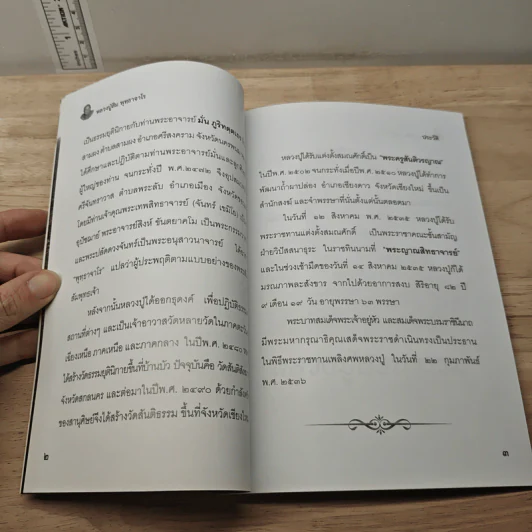 หลวงปู่สิม พุทธาจาโร
เป็นธรรมยุตินิกายกับท่านพระอาจารย์ มั่น ภูริทตฺต
สามผง ตำบลสามผง อำเภอศรีสงคราม จังหวัดนครพนม
ได้ศึกษาและปฏิบัติตามท่านพระอาจารย์มั่นและ
ผู้ใหญ่ของท่าน จนกระทั่งปี พ.ศ.๒๔๗๒ จึงอุปสมบท
ศรีจันทราวาส ตำบลพระลับ อำเภอเมือง จังหวัด
โดยมีท่านเจ้าคุณพระเทพสิทธาจารย์ (จันทร์ เขมิโย)
อุปัชฌาย์ พระอาจารย์สิงห์ ขันตยาคโม เป็นพระกรรม
และพระปลัดดวงจันทร์เป็นพระอนุสาวนาจารย์ ได้
"พุทธาจาโร" แปลว่าผู้ประพฤติตามแบบอย่างของพระ
สัมพุทธเจ้า
หลังจากนั้นหลวงปู่ได้ออกธุดงค์ เพื่อปฏิบัติธรรม
สถานที่ต่างๆ และเป็นเจ้าอาวาสวัดหลายวัดในภาคตะวัน
เฉียงเหนือ ภาคเหนือ และภาคกลาง ในปีพ.ศ.๒๔๘๐
ได้สร้างวัดธรรมยุติกนิกายขึ้นที่บ้านบัว ปัจจุบันคือ วัดสันติสังฆ
จังหวัดสกลนคร และต่อมาในปีพ.ศ. ๒๔๙๐ ด้วยกำลัง
ของสานุศิษย์จึงได้สร้างวัดสันติธรรม ขึ้นที่จังหวัดเชียงใหม่
๒
ประวัติ
หลวงปู่ได้รับแต่งตั้งสมณศักดิ์เป็น "พระครูสันติวรญาณ"
ในปีพ.ศ. ๒๕๐๒ จนกระทั่งเมื่อปีพ.ศ. ๒๕๑๐ หลวงปู่ได้ทำการ
พัฒนาถ้ำผาปล่อง อำเภอเชียงดาว จังหวัดเชียงใหม่ ขึ้นเป็น
สำนักสงฆ์ และจำพรรษาที่นั่นตั้งแต่นั้นตลอดมา
ในวันที่ ๑๒ สิงหาคม พ.ศ. ๒๕๓๕ หลวงปู่ได้รับ
พระราชทานแต่งตั้งสมณศักดิ์ เป็นพระราชาคณะชั้นสามัญ
ฝ่ายวิปัสสนาธุระ ในราชทินนามที่ "พระญาณสิทธาจารย์"
และในช่วงเช้ามืดของวันที่ ๑๔ สิงหาคม ๒๕๓๕ หลวงปู่ก็ได้
มรณภาพละสังขาร จากไปด้วยอาการสงบ สิริอายุ ๘๒ ปี
๙ เดือน ๑๙ วัน อายุพรรษา ๖๓ พรรษา
พระบาทสมเด็จพระเจ้าอยู่หัว และสมเด็จพระบรมราชินีนาถ
มีพระมหากรุณาธิคุณเสด็จพระราชดำเนินทรงเป็นประธาน
ในพิธีพระราชทานเพลิงศพหลวงปู่ ในวันที่ ๒๒ กุมภาพันธ์
พ.ศ. ๒๕๓๖
๓